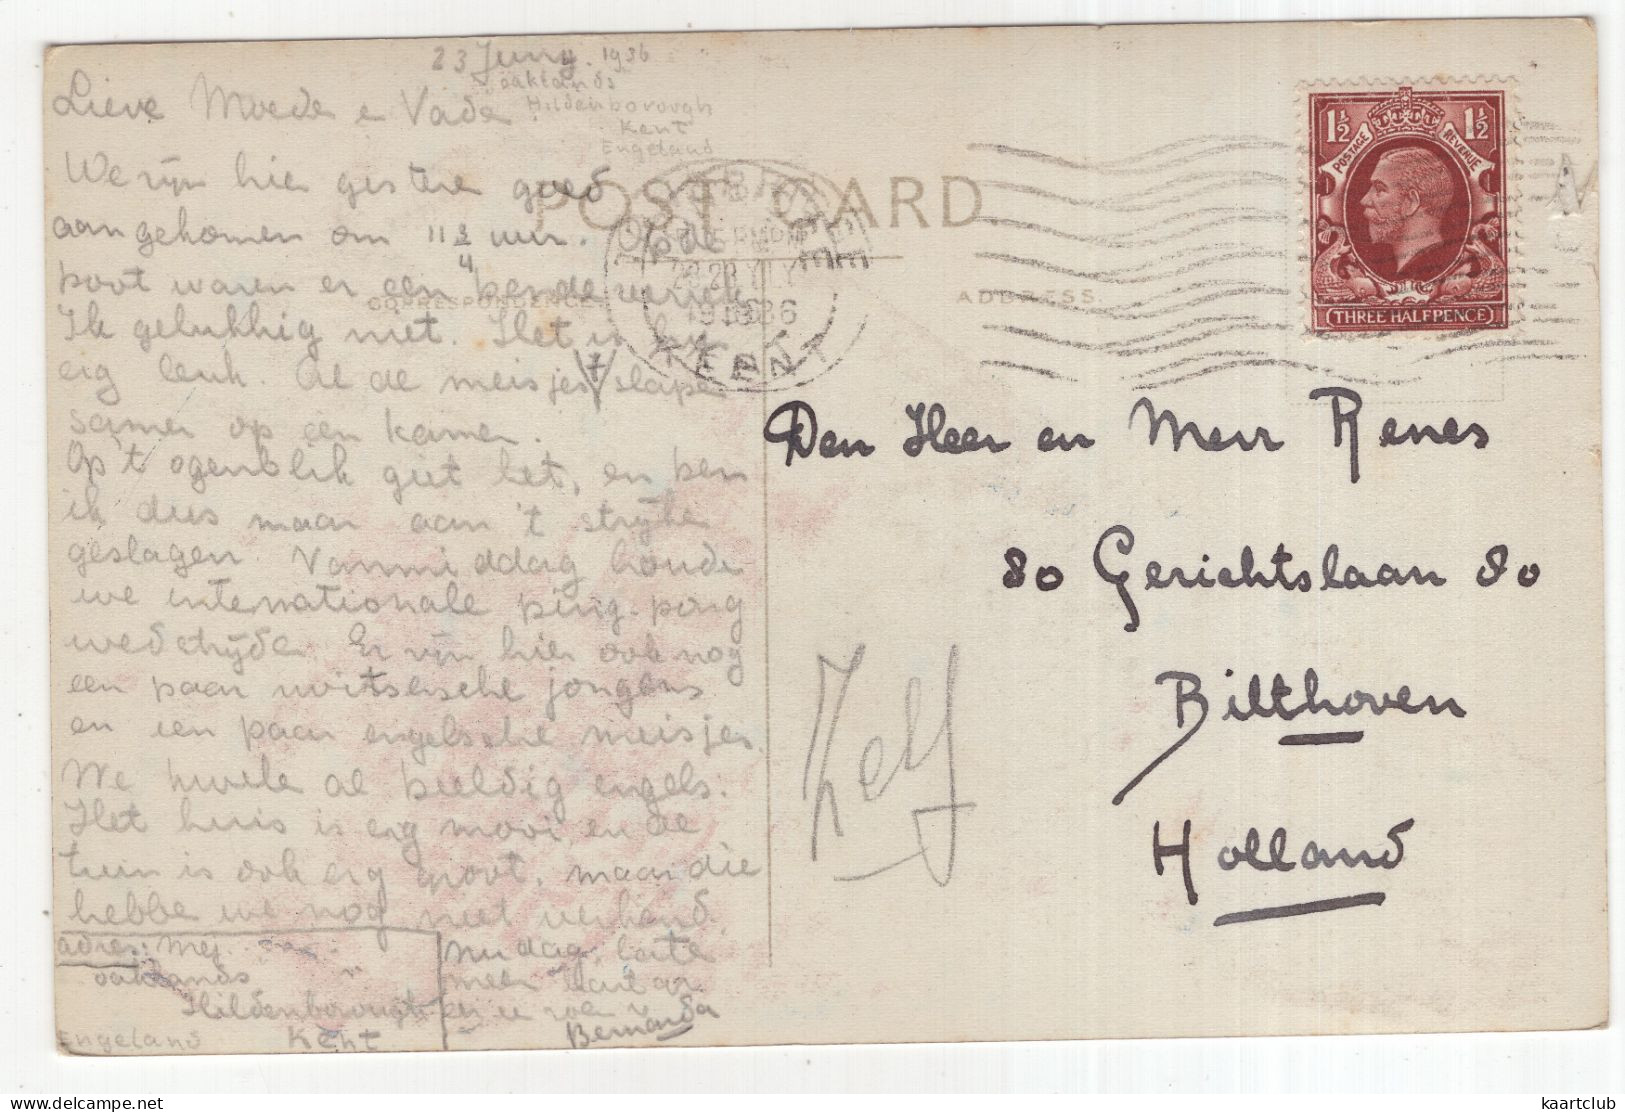 23 Juny. 1936
oaklands
Hildenborough
Kent
Engeland
Lieve Moede e Vade
We zijn hier gistere goed
aangekomen om 11 3/4 uur. Op de
boot waren er een bende
Ik gelukkig niet. Het is hier
erg leuk. Al de meisjes slape
samen op één kamer.
Op 't ogenblik giet het, en ben
ik dus maar aan 't strijke
geslagen. Vanmiddag houde
we internationale ping-pong
wedstrijde. Er zijn hier ook nog
een paar zwitsersche jongens
en een paar engelsche meisjes.
We kwele al beeldig engels.
Het huis is erg mooi, en de
tuin is ook erg groot, maar die
hebbe we nog niet verkend.
adres: Mej.
oaklands
Hildenborough
Kent
Engeland
Nu dag, late
meer
en e zoen v
Bernarda
POST CARD
CORRESPONDENCE
ADDRESS.
1936
KENT
POSTAGE REVENUE
1½ 1½
THREE HALFPENCE
Den Heer en Mevr Renes
80 Gerichtslaan 80
Bilthoven
Holland
Zelf
kaartclub
delcampe.net